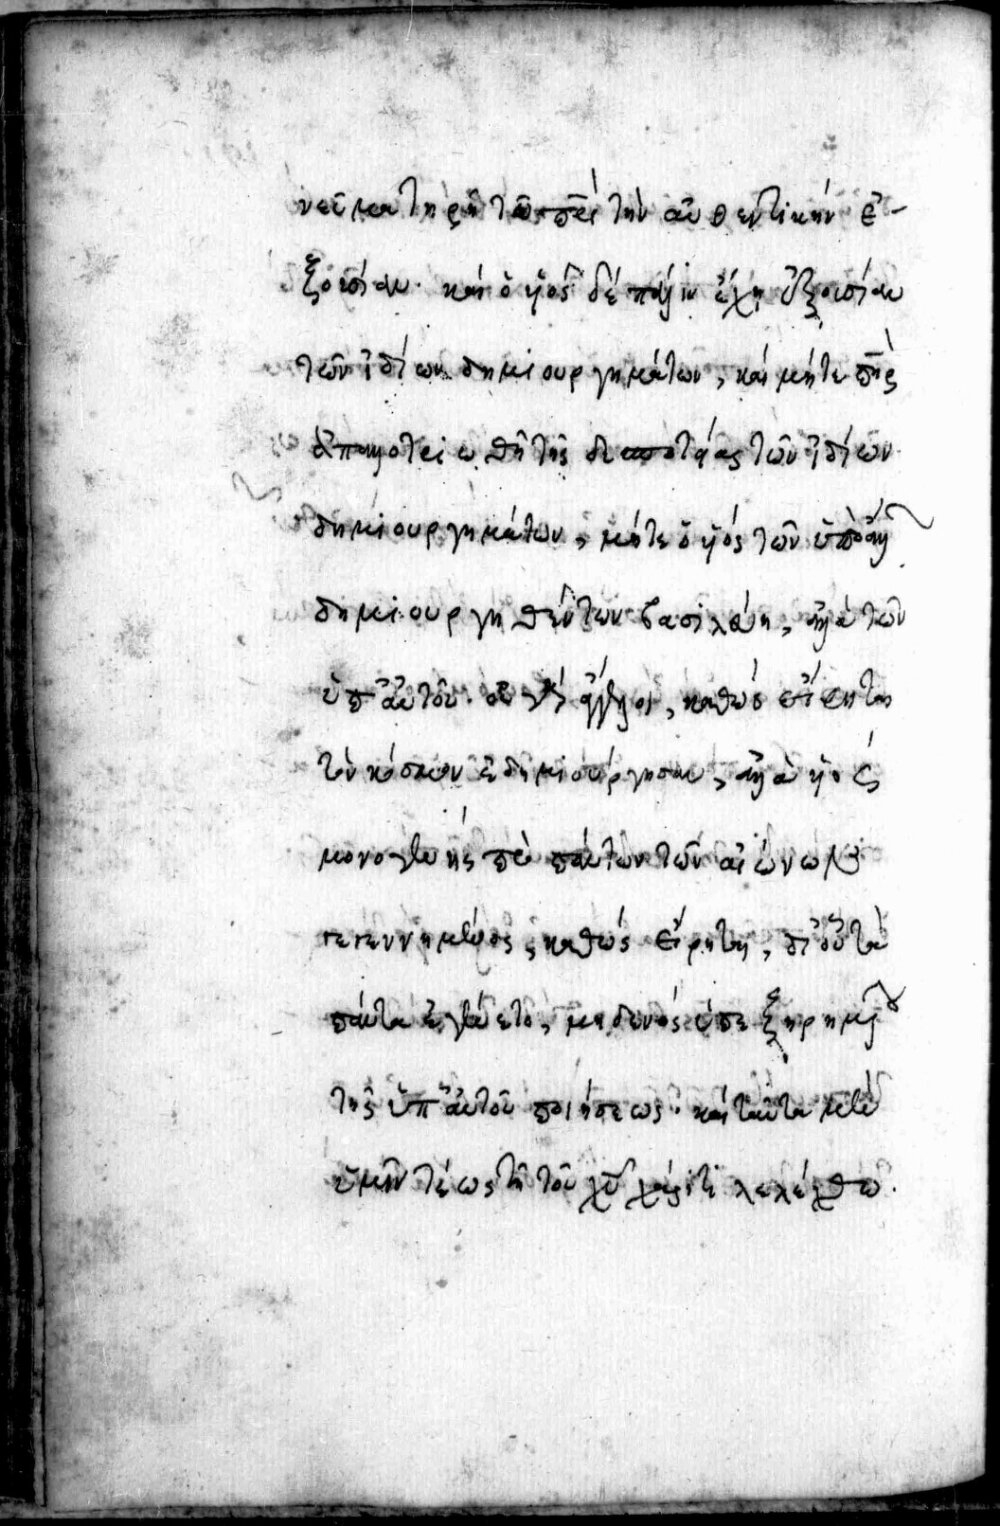 νεύματι τηρῆ τῷ πρι τὴν αὐθεντικὴν ἐ-
ξουσίαν· καὶ ὁ υἱὸς δὲ πάλιν ἔχη ἐξουσίαν
τῶν ἰδίων δημιουργημάτων, καὶ μήτε πηρ
ἀπαλλοτριωθῆ τῆς δεσποτείας τῶν ἰδίων
δημιουργημάτων, μήτε ὁ υἱὸς τῶν ὑπ' ἄλλου
δημιουργηθέντων βασιλεύη, ἀλλὰ τῶν
ὑπ' αὐτοῦ· οὐ γὰρ ἄγγελοι, καθὼς εἴρηται
τὸν κόσμον ἐδημιούργησαν, ἀλλὰ υἱὸς
μονογενὴς πρὸ πάντων τῶν αἰώνων
γεγεννημένος, καθὼς εἴρηται, δι' οὗ τὰ
πάντα ἐγένετο, μηδενὸς ὑπεξηρημένου
τῆς ὑπ' αὐτοῦ ποιήσεως· καὶ ταῦτα μὲν
ὑμῖν τέως τῆ τοῦ χῦ χάριτι λελέχθω.